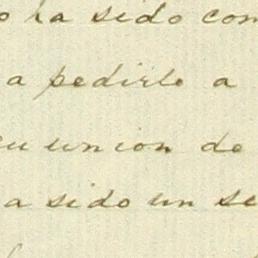 ha sido com
a pedirle a
union de
a sido un se